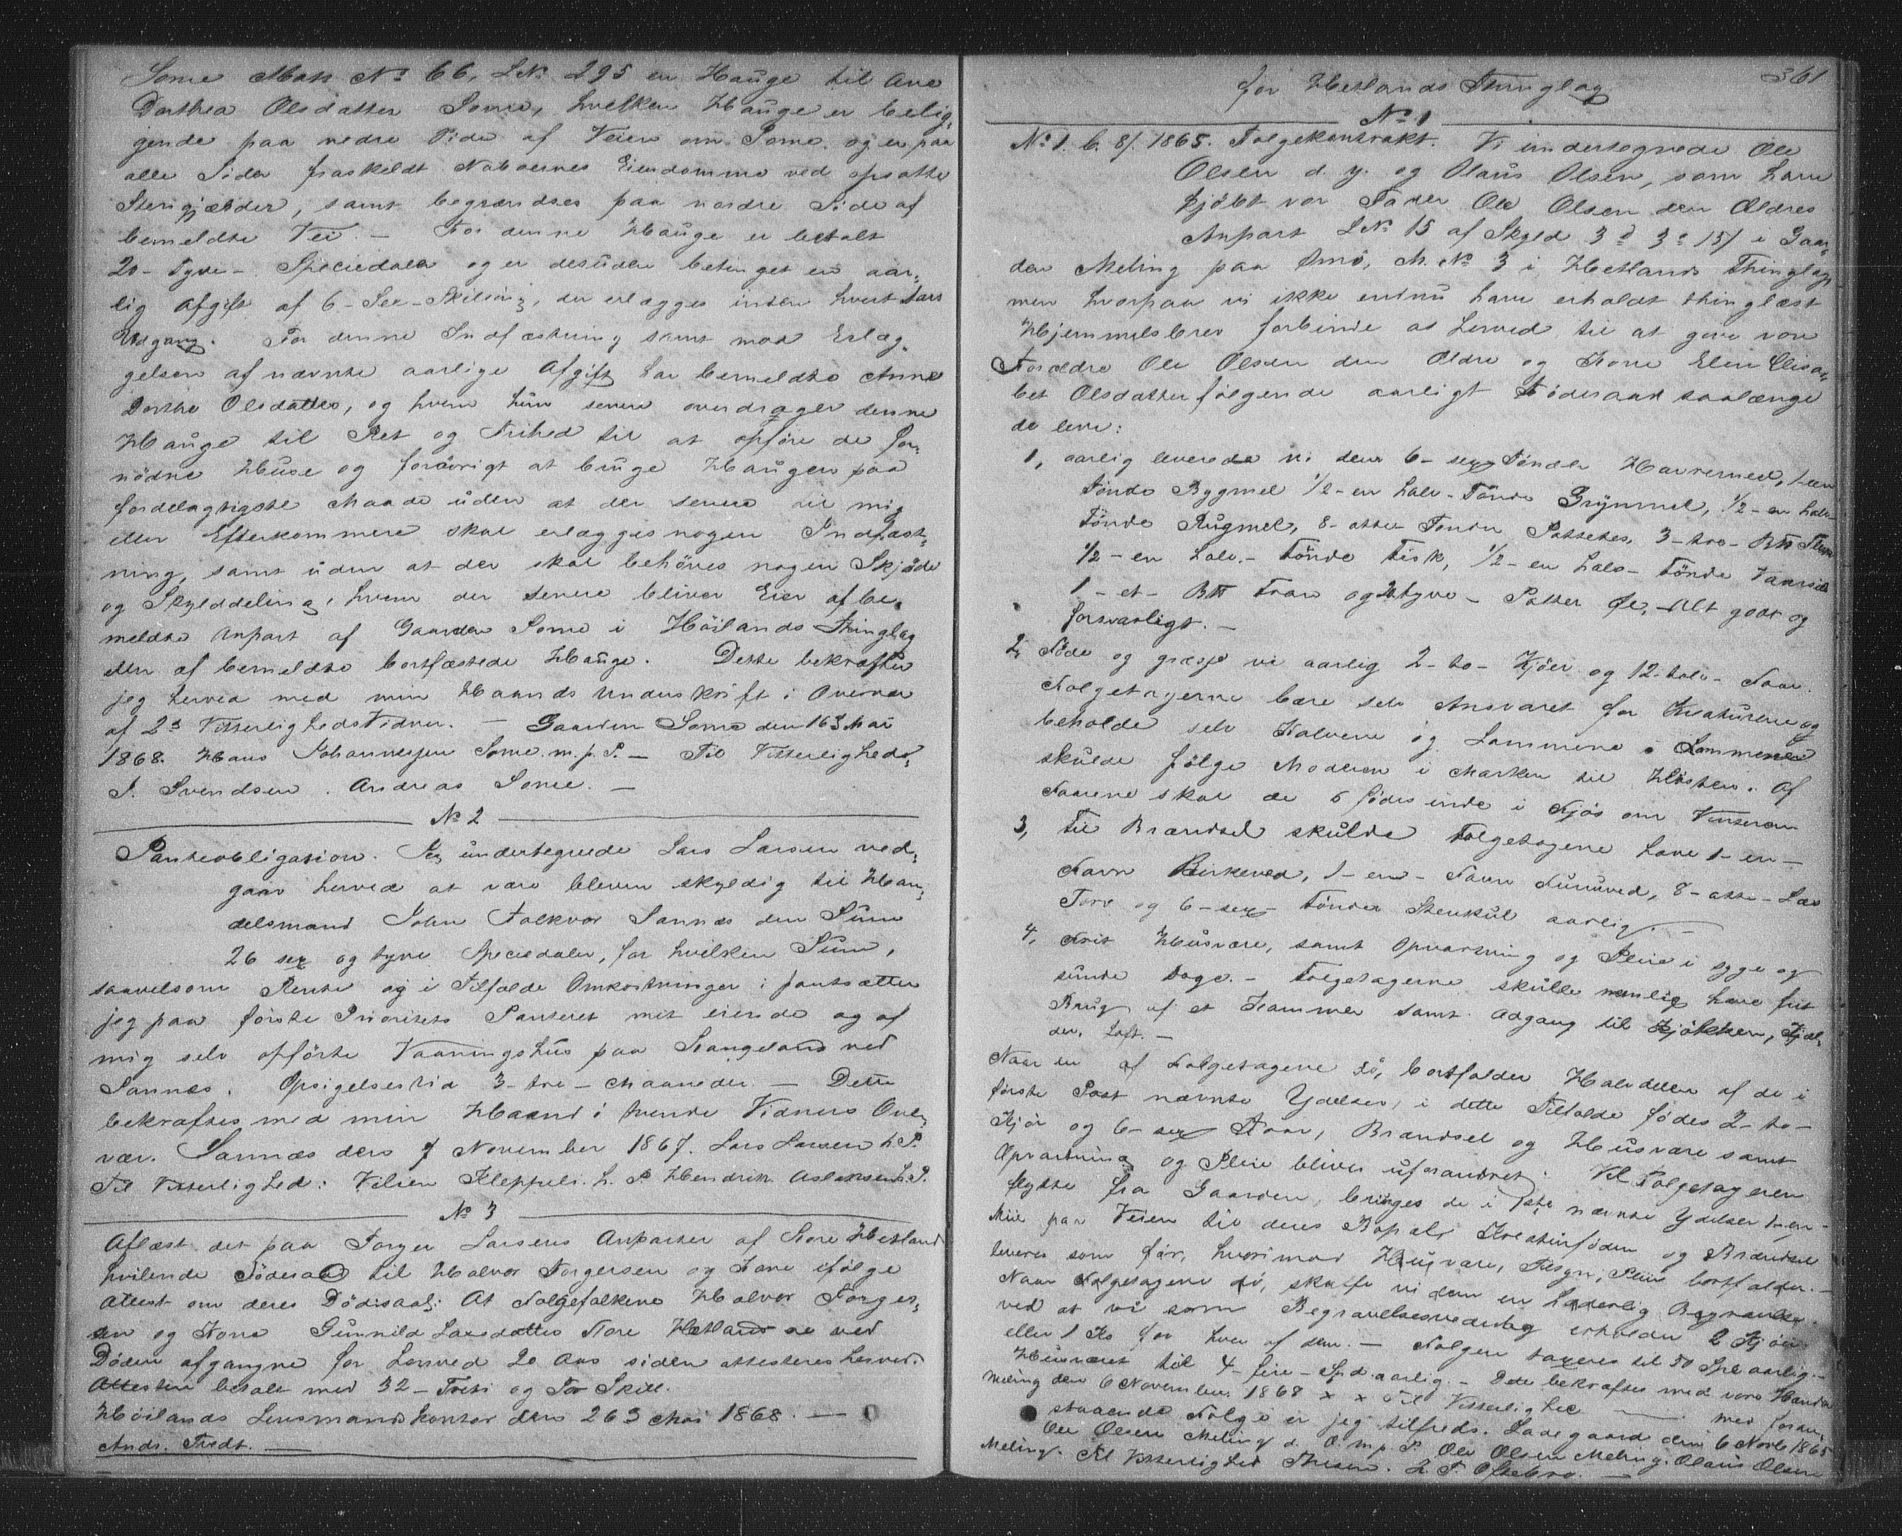 Some Matr N° 66, LN. 295 en Hauge til Ane
Dorthea Olsdatter Some, hvilken Hauge er belig-
gende paa nedre Side af Veien om Some og er paa
alle Sider fraskeldt Naboernes Eiendomme ved opsatte
Stengjærder, samt begrændses paa nordre Side af
bemeldte Vei. — For denne Hauge er betalt
20 - Tyve - Speciedaler og er desuden betinget en aar-
lig Afgift af 6 - Sex - Skilling, der erlægges inden hvert Aars
Udgang. For denne Indfæstning samt mod Erlæg-
gelsen af nævnte aarlige Afgift har bemeldte Anne
Dorthe Olsdatter, og hvem hun senere overdrager denne
Hauge til Ret og Frihed til at opføre de for-
nödne Huse og forövrigt at bruge Haugen paa
fordelagtigste Maade uden at der senere til mig
eller Efterkommere skal erlægges nogen Indfæst-
ning, samt uden at der skal behöves nogen Skjöde
og Skylddeling, hvem der senere bliver Eier af be-
meldte Anpart af Gaarden Some i Höilands Thinglag
eller af bemeldte bortfæstede Hauge. Dette bekræfter
jeg herved med min Haands Underskrift i Overvær
af 2de Vitterligheds Vidner. — Gaarden Some den 16de Mai
1868. Hans Johannessen Some m. p. P. — Til Vitterligheds
S. Svendsen. Andreas Some. —
N° 2
Panteobligation. Jeg undertegnede Lars Larsen ved-
gaar herved at være bleven skyldig til Han-
delsmand John Falkvor Sannæs den Sum
26 sex og tyve Speciedaler, for hvilken Sum,
saavelsom Rente og i Tilfælde Omkostninger i pantsætter
jeg paa förste Prioritets Panteret mit eiende og af
mig selv opförte Vaaningshus paa Stangeland ved
Sannæs. Opsigelsestid 3 - tre - Maaneder — Dette
bekræftes med min Haand i tvende Vidners Over-
vær. Sannæs den 7 November 1867. Lars Larsen h. P.
Til Vitterlighed: Kleppeli h. P. Hendrik Aslaksen h. P.
N° 3
Aflæst det paa Torger Larsens Anparter af Store Hetland
hvilende Födesaad til Halvor Torgersen og Kone ifölge
Attest om deres Dödsaal: At Folgefolkene Halvor Torger-
sen og Kone Gunnild Larsdatter Store Hetland er ved
Döden afgangne for herved 20 Aar siden attesteres herved.
Attesten betalt med 32 - Treti og To Skill.
Höilands Lensmandskontor den 26de Mai 1868. —
Ands. Tvedt. —
361
for Hetlands Thinglag
N° 1
N° 1. b. 8/. 1865. Folgekontrakt. Vi undertegnede Ole
Olsen d. y. og Olaus Olsen, som have
kjöbt vor Fader Ole Olsen den Ældres
Anpart LN. 15 af Skyld 3 d 3 o 15/ i Gaar-
den Meling paa Amö, M. N° 3 i Hetlands Thinglag,
men hvorpaa vi ikke endnu have erholdt thinglæst
Hjemmelsbrev forbinde os herved til at give vore
Forældre Ole Olsen den Ældre og Kone Elen Elisa-
bet Olsdatter fölgende aarligt Födesaad saalænge
de leve:
1, aarlig leverede vi dem 6 - sex Tönder Havremel, 1 - en
Tönde Bygmel 1/2 - en halv - Tönde Grynmel, 1/2 - en halv
Tönde Rugmel, 8 - otte - Tönder Potetes, 3 - tre -
1/2 - en halv. - Tönde Fisk, 1/2 - en halv - Tönde Vaarsild
1 - et - Tran og tyve - Potter Öl, - Alt godt og
forsvarligt. —
2, Föde og græsse vi aarlig 2 - to - Kjöer og 12 - tolv - Faar.
Folgetagerne bære selv Ansvaret for Kreaturene og
beholde selv Kalvene og Lammene. Lammene
skulde fölge Moderen i Marken til Hösten. Af
Faarene skal de 6 födes inde i Fjös om Vinteren
3, Til Brændsel skulde Folgetagerne have 1 - en -
Favn Birkeved, 1 - en - Favn Furuved, 8 - otte - Læs
Torv og 6 - sex - Tönder Stenkul aarlig. —
4, Frit Husvære, samt Opvartning og Pleie i syge og
sunde Dage. - Folgetagerne skulle nemlig have frit
Brug af et Kammer samt Adgang til Kjökken, Kjæl-
der, Loft. —
Naar en af Folgetagerne dö, bortfalder Halvdelen af de i
förste Post nævnte Ydelser, i dette Tilfælde födes 2 - to -
Kjör og 6 - sex Faar, Brændsel og Husvære samt
Opvartning og Pleie bliver uforandret. Vil Folgetageren
flytte fra Gaarden, bringes de i 1ste nævnte Ydelser 1 - en -
Mil paa Veien til deres Bopæl, Kreaturföden og Brændsel
leveres som för, hvorimod Husvære, Tilsyn, Pleie bortfalder. -
Naar Folgetagerne dö, skaffe vi dem en hæderlig Begravelse
ved at vi som Begravelsesvederlag erholder 2 Kjöer
eller 1 Ko for hver af dem. - Folgen taxeres til 50 Spd aarlig. -
Husværet til 4 - fire - Spd. aarlig. - Dette bekræftes med vore Hænder
Meling den 6 November 1868 x x Til Vitterlighed — med foran-
staaende Folge er jeg tilfreds. Ladegaard den 6 Novb 1865
Ole Olsen Meling d. Æ. m. p. P. Ole Olsen Meling. Olaus Olsen
Meling. Til Vitterlighed